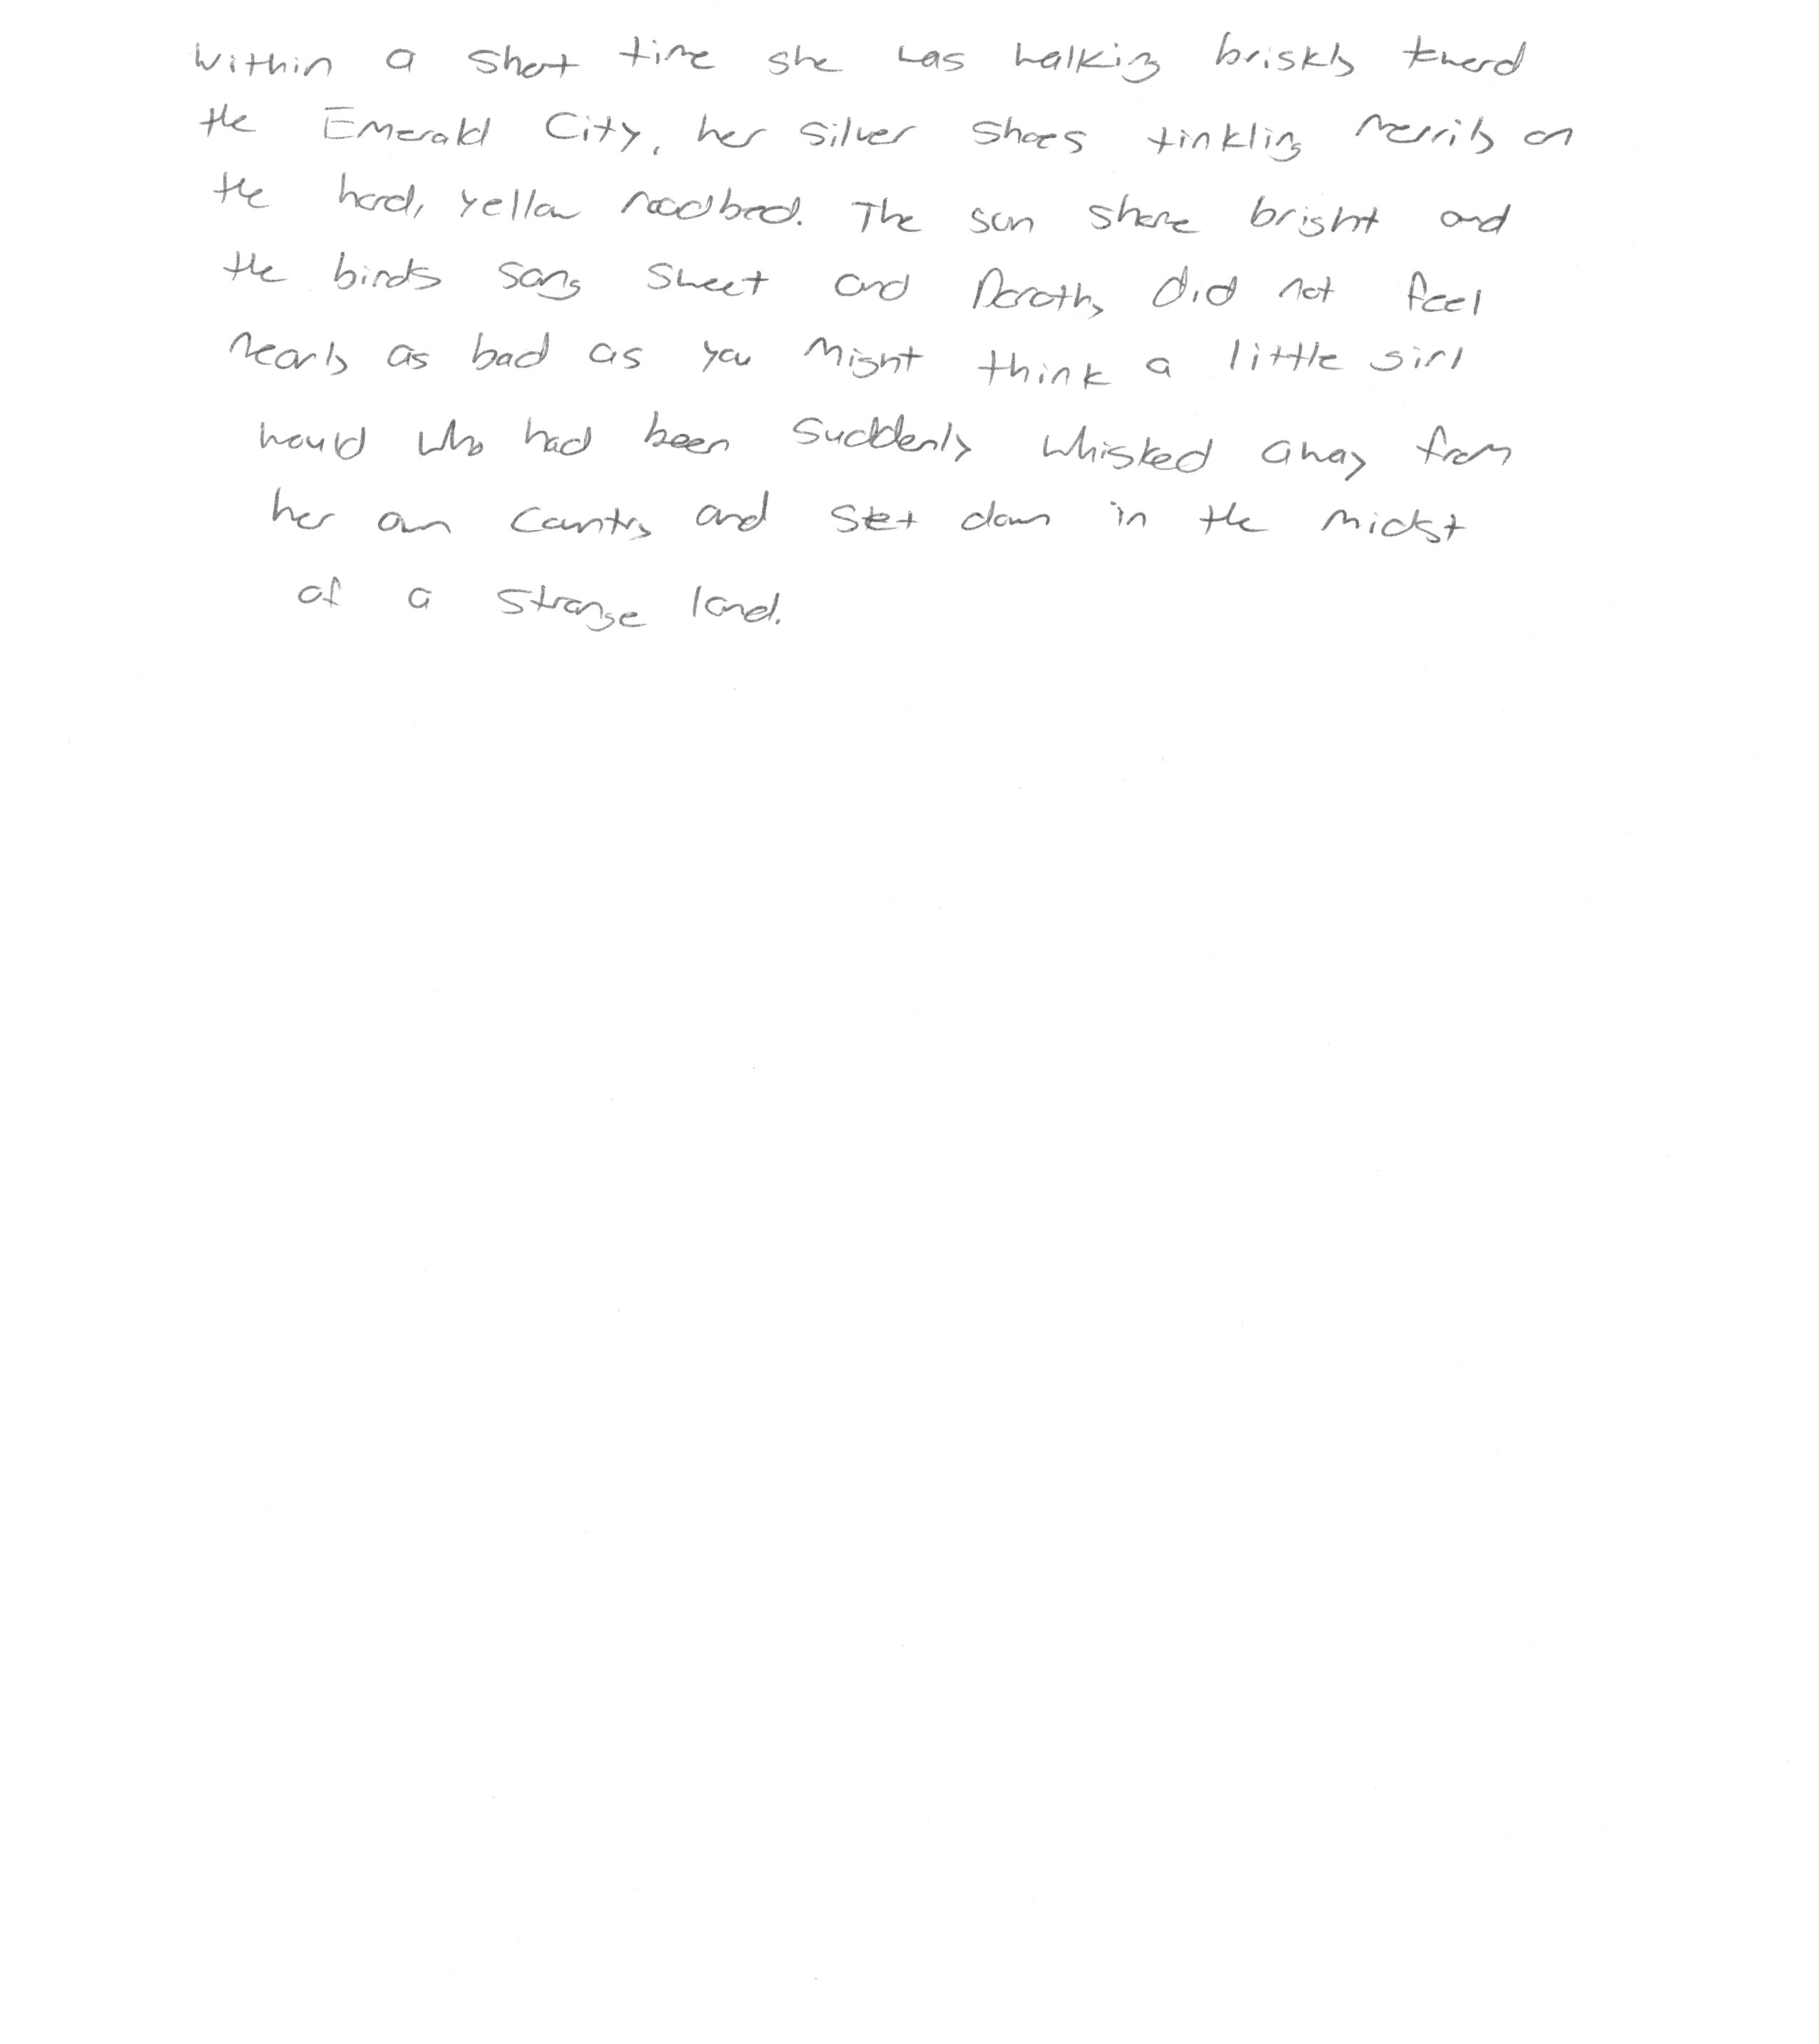 Within a short time she was walking briskly toward
the Emerald City, her silver shoes tinkling merrily on
the hard, yellow roadbed. The sun shone bright and
the birds sang sweet and Dorothy did not feel
nearly as bad as you might think a little girl
would who had been suddenly whisked away from
her own country and set down in the midst
of a strange land.